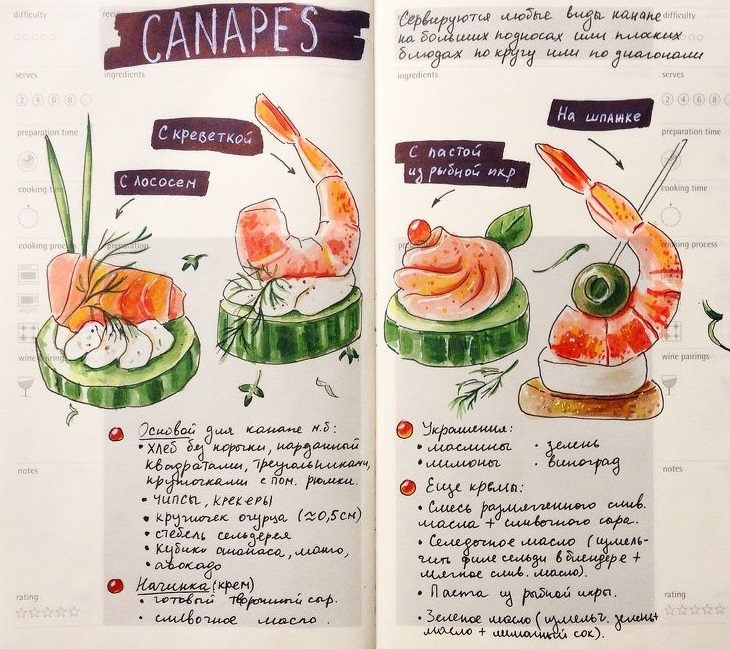 CANAPES
Сервируются любые виды канапе
на больших подносах или плоских
блюдах по кругу или по диагонали
difficulty
serves
2 4 6 8
preparation time
cooking time
cooking process
wine
notes
rating
ingredients
preparation
С лососем
С креветкой
С пастой
из рыбной икр
На шпажке
Основой для канапе м.б:
• хлеб без корочки, нарданный
квадратами, треугольниками,
кружочками с пом. рюмки.
• чипсы, крекеры
• кружочек огурца (≈0,5см)
• стебель сельдерея
• Кубики ананаса, манго,
• авокадо
Начинка (крем)
• готовый творожный сыр.
• сливочное масло.
ingredients
difficulty
serves
2 4 6 8
preparation time
cooking time
cooking process
wine pairings
notes
rating
Украшения:
• маслины • зелень
• лимоны • виноград
Еще кремы:
• Смесь размягченного слив.
масла + сливочного сыра.
• Селедочное масло (измель-
чить филе сельди в блендере +
мягкое слив. масло).
• Паста из рыбной икры.
• Зеленое масло (измельч. зелень+
масло + лимонный сок).